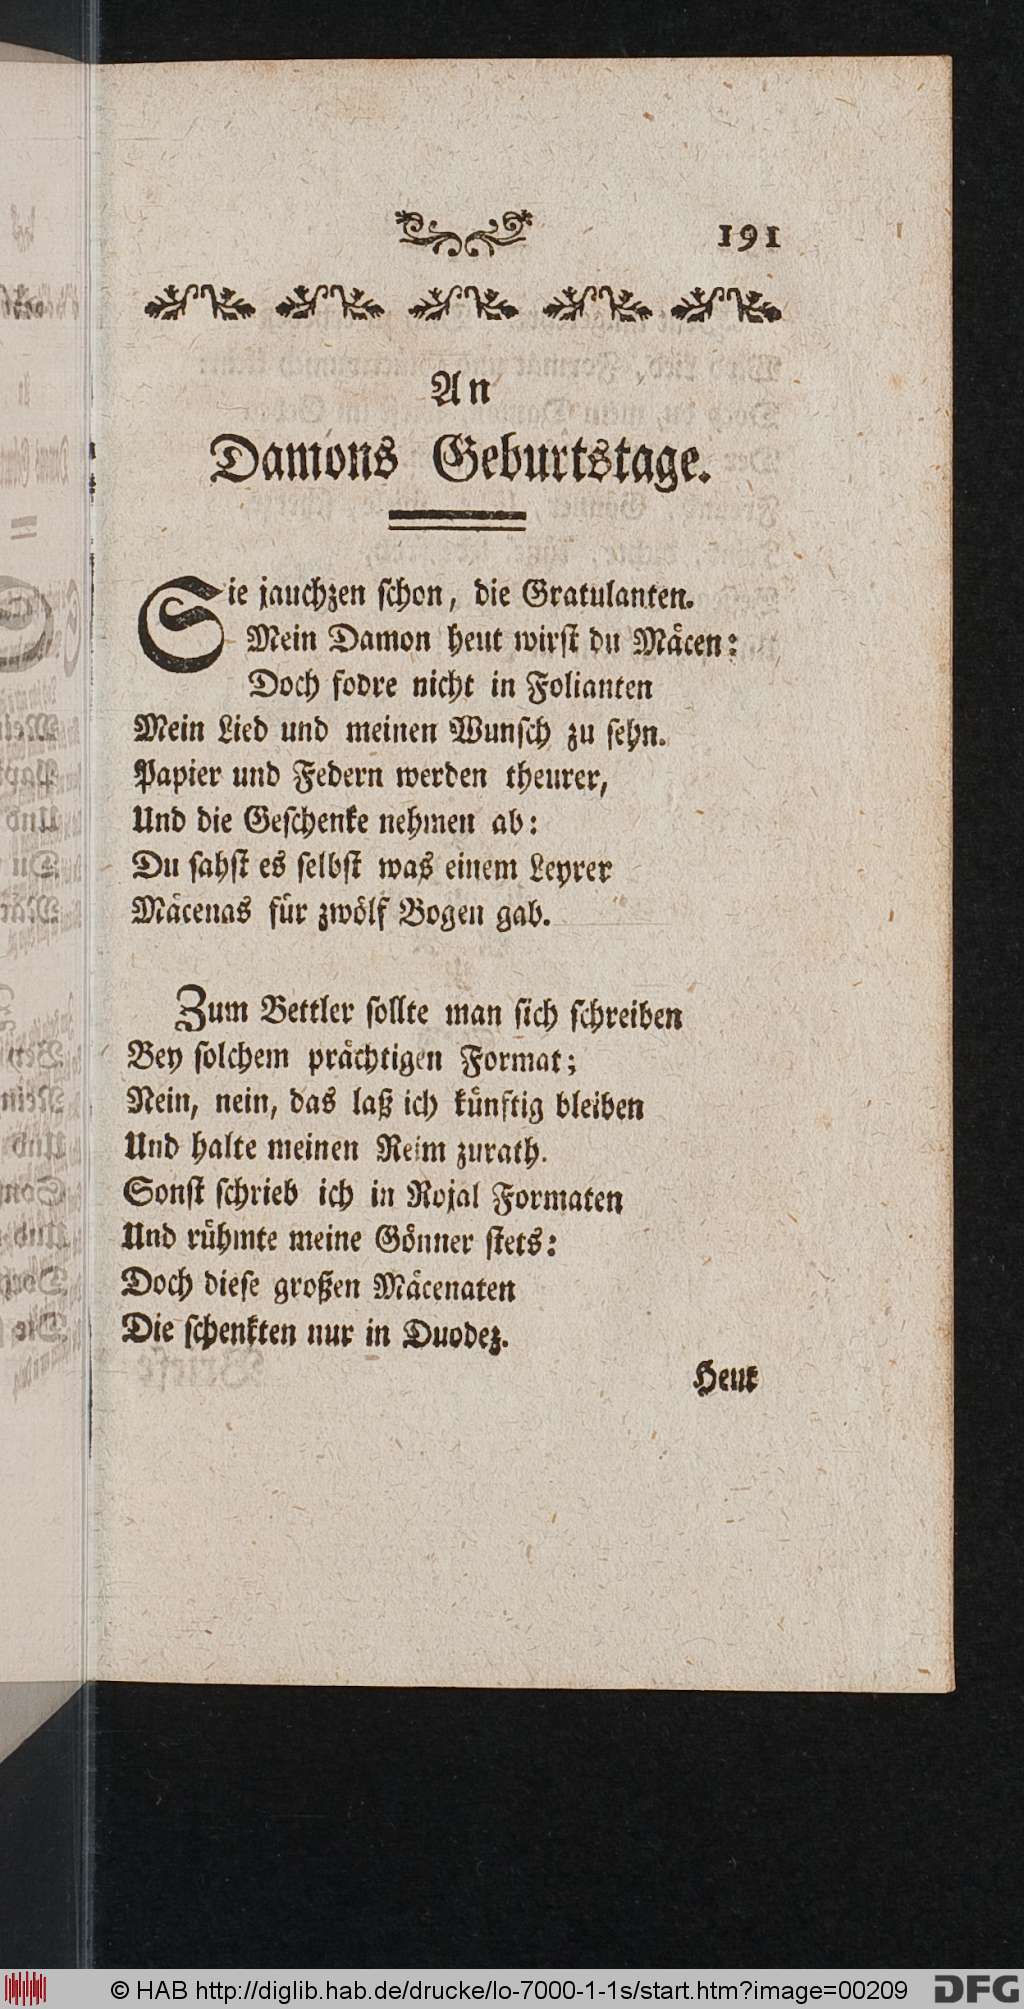 191
An
Damons Geburtstage.
Sie jauchzen schon, die Gratulanten.
Mein Damon heut wirst du Mäcen:
Doch fodre nicht in Folianten
Mein Lied und meinen Wunsch zu sehn.
Papier und Federn werden theurer,
Und die Geschenke nehmen ab:
Du sahst es selbst was einem Leyrer
Mäcenas für zwölf Bogen gab.
Zum Bettler sollte man sich schreiben
Bey solchem prächtigen Format;
Nein, nein, das laß ich künftig bleiben
Und halte meinen Reim zurath.
Sonst schrieb ich in Rojal Formaten
Und rühmte meine Gönner stets:
Doch diese großen Mäcenaten
Die schenkten nur in Duodez.
Heut
© HAB http://diglib.hab.de/drucke/lo-7000-1-1s/start.htm?image=00209
DFG